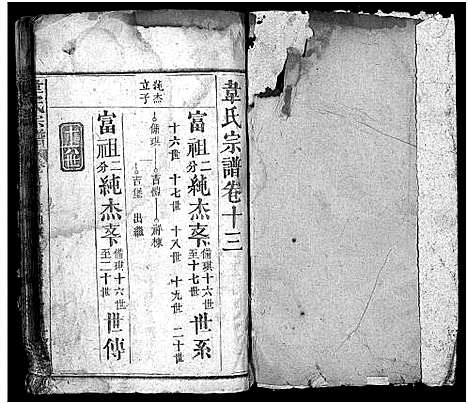 韋氏宗譜卷十三
富祖二分純杰支備琪十六世至十七世世系
十六世 十七世 十八世 十九世 二十世
備琪 吉愷 府棟
吉堡 出繼
純杰立子
富祖二分純杰支備琪十六世至二十世世傳
韋氏宗譜